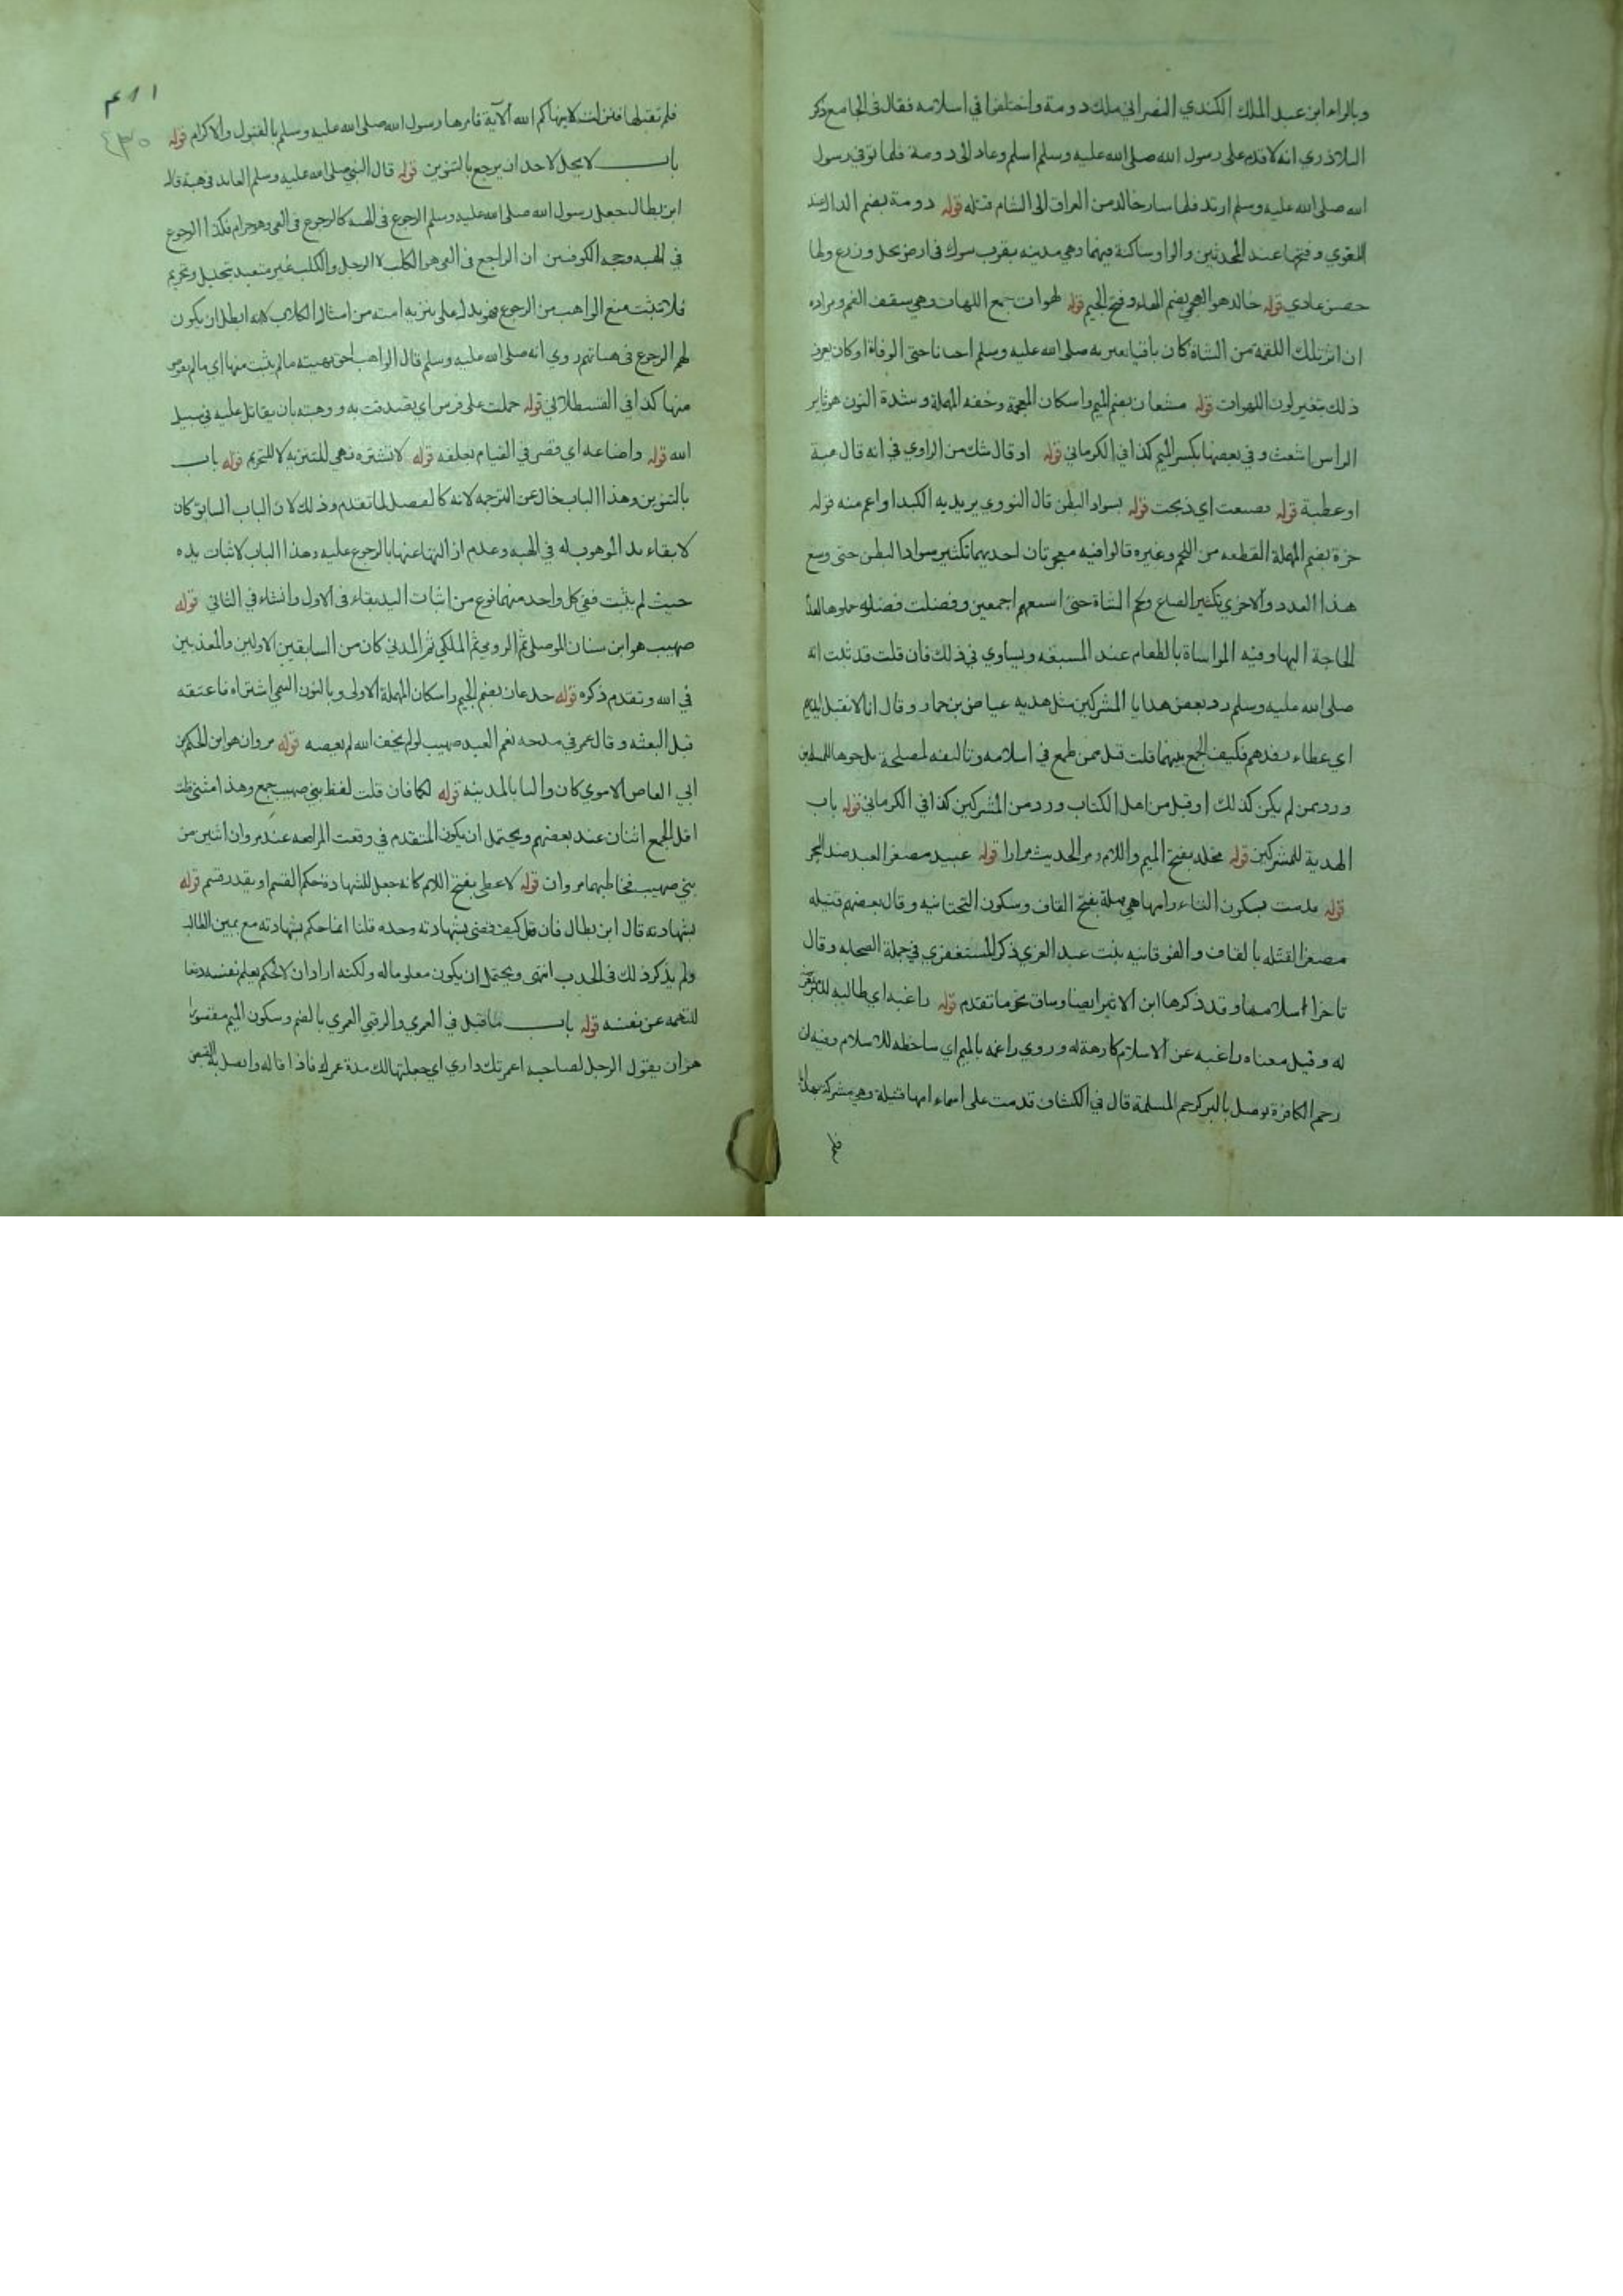 وبالراء ابن عبد الملك الكندي النصراني ملك دومة واختلفوا في اسلامه فقال في الجامع ذكر
البلاذري انه لا قدم على رسول الله صلى الله عليه وسلم اسلم وعاد الى دومة فلما توفي رسول
الله صلى الله عليه وسلم ارتد فلما سار خالد من العراق الى الشام قتله قوله دومة بضم الدال عند
اللغوي وفتحها عند المحدثين والواو ساكنة فيهما وهي مدينه بقرب تبوك في ارض نخل وزرع ولها
حصن عادي قوله خالد هو الهجيمي بضم الهاء وفتح الجيم قوله لهوات جمع اللهات وهي سقف الفم ومراده
ان اثر تلك اللقمة من الشاة كان باقيا يعتريه صلى الله عليه وسلم احيانا حتى الوفاة او كان يعرف
ذلك بتغير لون اللهوات قوله مشعان بضم الميم واسكان المعجمة وخفه المهملة وشدة النون هو ثاير
الراس اشعث وفي بعضها بكسر الميم كذا في الكرماني قوله او قال شك من الراوي في انه قال هبة
او عطية قوله فصنعت اي ذبحت قوله بسواد البطن قال النووي يريد به الكبد او اعم منه قوله
حزة بضم المهملة القطعه من اللحم وغيره قالوا فيه معجزتان احديهما تكثير سواد البطن حتى وسع
هذا العدد والاخرى تكثير الصاع ولحم الشاة حتى اشبعهم اجمعين وفضلت فضلوه حملوها لعدم
الحاجة اليها وفيه المواساة بالطعام عند المسبغه ويساوي في ذلك فان قلت قد ثبت انه
صلى الله عليه وسلم رد بعض هدايا المشركين مثل هديه عياض بن حمار وقال انا لا نقبل زبدهم
اي عطاء رفدهم فكيف الجمع بينهما قلت قبل ممن طمع في اسلامه وتاليفه لمصلحة يرجوها للمسلمين
ورد ممن لم يكن كذلك او قبل من اهل الكتاب ورد من المشركين كذا في الكرماني قوله باب
الهدية للمشركين قوله مخلد بفتح الميم واللام ومر الحديث مرارا قوله عبيد مصغر العبد ضد الحر
قوله قدمت بسكون التاء وامها هي قيلة بفتح القاف وسكون التحتانيه وقال بعضهم قتيله
مصغر القتله بالقاف والفوقانيه بنت عبد العزي ذكر المستغفري في جملة الصحابه وقال
تاخر اسلامها وقد ذكرها ابن الاثير ايضا وساق نحو ما تقدم قوله راغبه اي طالبه
له وقيل معناه راغبه عن الاسلام كارهة له وروي راغمه بالميم اي ساخطه للاسلام وفيه ان
رحم الكافرة توصل بالبر كرحم المسلمة قال في الكشاف قدمت على اسماء امها قتيلة وهي مشركة بهدايا
فلم
فلم تقبلها فنزلت لا ينهاكم الله الآية فامرها رسول الله صلى الله عليه وسلم بالقبول والاكرام قوله
باب لا يحل لاحد ان يرجع بالتنوين قوله قال النبي صلى الله عليه وسلم العايد في هبة قال
ابن بطال جعل رسول الله صلى الله عليه وسلم الرجوع في الهبة كالرجوع في القي وهو حرام فكذا الرجوع
في الهبه وحجه الكوفيين ان الراجع في القي هو الكلب لا الرجل والكلب غير متعبد بتحليل وتحريم
فلا تثبت منع الواهب من الرجوع فهو يدل على تنزيه امته من امثال الكلاب لا انه ابطل ان يكون
لهم الرجوع في هباتهم روي انه صلى الله عليه وسلم قال الواهب احق بهبته ما لم يثبت منها اي ما لم يعوض
منها كذا في القسطلاني قوله حملت على فرس اي تصدقت به ووهبته بان يقاتل عليه في سبيل
الله قوله واضاعه اي قصر في القيام بعلفه قوله لا تشتره نهي للتنزيه لا للتحريم قوله باب
بالتنوين وهذا الباب خال عن الترجمه لانه كالفصل لما تقدم وذلك لان الباب السابق كان
لابقاء يد الموهوب له في الهبه وعدم انتهائها بالرجوع عليه وهذا الباب لاثبات يده
حيث لم يثبت ففي كل واحد منهما نوع من اثبات اليد بقاء في الاول وانشاء في الثاني قوله
صهيب هو ابن سنان الموصلي ثم الرومي ثم المكي ثم المدني كان من السابقين الاولين والمعذبين
في الله وتقدم ذكره قوله جدعان بضم الجيم واسكان المهملة الاولى وبالنون التيمي اشتراه فاعتقه
قبل البعثه وقال عمر في مدحه نعم العبد صهيب لو لم يخف الله لم يعصه قوله مروان هو ابن الحكم بن
ابي العاص الاموي كان واليا بالمدينه قوله لكما فان قلت لفظ بني صهيب جمع وهذا مثنى قلت
اقل الجمع اثنان عند بعضهم ويحتمل ان يكون المتقدم في وقعت المرافعه عند مروان اثنين من
بني صهيب فخاطبهما مروان قوله لاعطى بفتح اللام كانه جعل للشهادة حكم القسم او يقدر قسم قوله
بشهادته قال ابن بطال فان قيل كيف قضى بشهادته وحده قلنا انما حكم بشهادته مع يمين الطالب
ولم يذكر ذلك في الحديث انتهى ويحتمل ان يكون معلوما له ولكنه اراد ان لا يحكم بعلم نفسه دفعا
للتهمه عن نفسه قوله باب ما قيل في العمري والرقبي العمري بالضم وسكون الميم مقصورا
هو ان يقول الرجل لصاحبه اعمرتك داري اي جعلتها لك مدة عمرك فاذا قاله واتصل به القبض